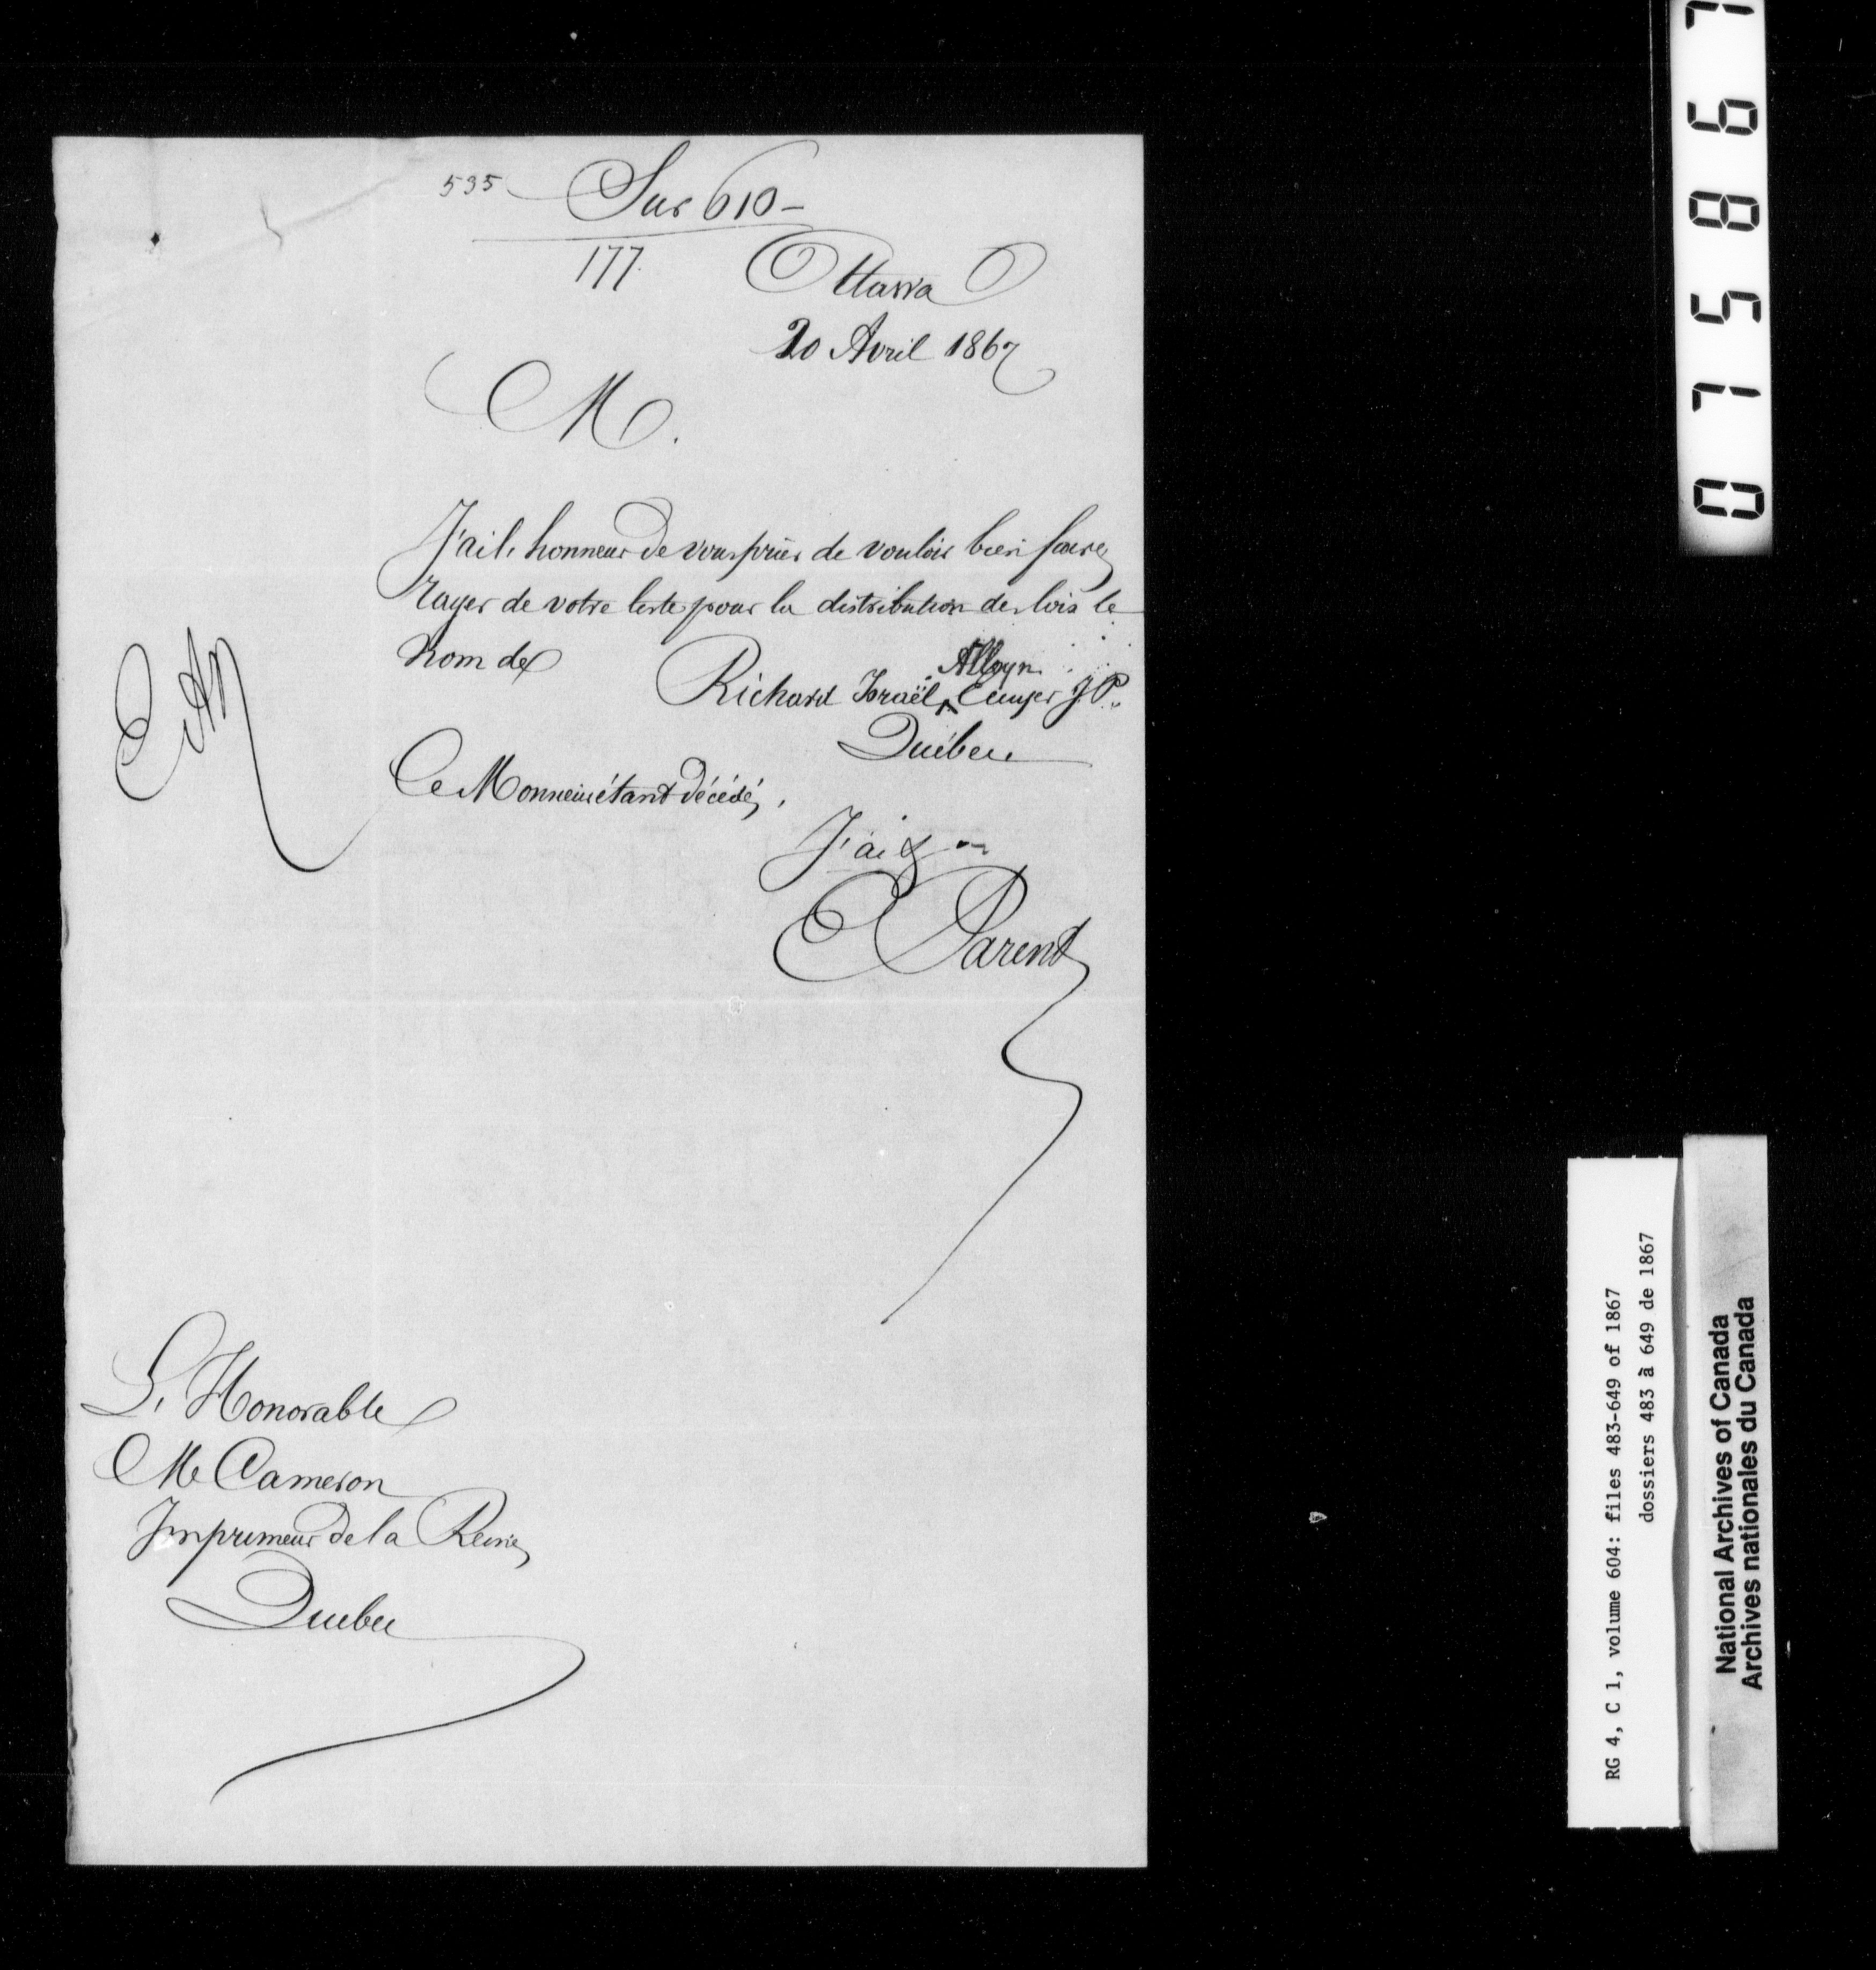 535 Sur 610 –
177
Ottawa
20 Avril 1867
M.
J'ai l'honneur de vous prier de vouloir bien faire
rayer de votre liste pour la distribution des lois le
nom de
Alleyn
Richard Israël Ecuyer J.P.
Québec
Ce Monsieur étant décédé,
J'ai &
E Parent
L'Honorable
M Cameron
Imprimeur de la Reine
Québec
075867
RG 4, C 1, volume 604: files 483-649 of 1867
dossiers 483 à 649 de 1867
National Archives of Canada
Archives nationales du Canada